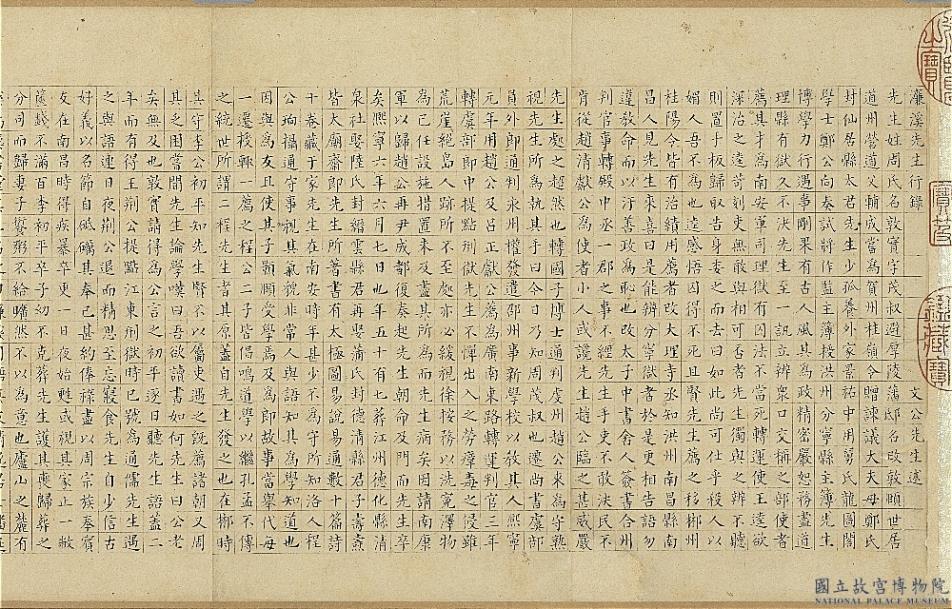 濂溪先生行錄 一 文公先生述
先生姓周氏名敦實一字茂叔避厚陵藩邸名改敦頤世居
道州營道父輔成嘗為賀州桂嶺令贈諫議大夫母鄭氏
封仙居縣太君先生少孤養外家景祐中用舅氏龍圖閣
學士鄭公向奏試將作監主簿授洪州分寧縣主簿先生
博學力行遇事剛果有古人風其為政精密嚴恕務盡道
理縣有獄久不決先生至一訊立辨眾口交稱之部使者
薦其才為南安軍司理獄有囚法不當死轉運使王逵欲
深治之逵苛刻吏無敢與相可否者先生獨與之辨不聽
則置手板歸取告身委之而去曰如此尚可仕乎殺人以
媚人吾不為也逵感悟囚得不死且賢先生薦之移郴州
桂陽令皆有治績用薦者改大理寺丞知洪州南昌縣南
昌人見先生來喜曰是能辨分寧獄者於是更相告語勿
違教命而以汙善政為恥也改太子中書舍人簽書合州
判官事轉殿中丞一郡之事不經先生手吏不敢決民不
肯從趙清獻公為使者小人或讒先生趙公臨之甚威嚴
先生處之超然也轉國子博士通判虔州趙公來為守熟
視先生所為執其手曰今日乃知周茂叔也遷尚書虞部
員外郎通判永州權發遣邵州事新學校以教其人熙寧
元年用趙公及呂正獻公薦為廣南東路轉運判官三年
轉虞部郎中提點刑獄先生不憚出入之勞瘴毒之侵雖
荒崖絕島人跡所不至處亦必緩視徐按務以洗冤澤物
為己任設施措置未及盡其所為而先生病矣因請南康
軍以歸趙公再尹成都復奏起先生朝命及門而先生卒
矣熙寧六年六月七日也年五十有七葬江州德化縣清
泉社娶陸氏封縉雲縣君再娶蒲氏封德清縣君子壽燾
皆太廟齋郎先生所著書有太極圖易說易通數十篇詩
十卷藏于家先生在南安時年甚少不為守所知洛人程
公珦攝通守事視其氣貌非常人與語知其為學知道也
因與為友且使其子顥頤受學焉及為郎故事當舉代每
一遷授輒一薦之程公二子皆倡鳴道學以繼孔孟不傳
之統世所謂二程先生者其原蓋自先生發之也在郴時
其守李公初平知先生賢不以屬吏遇之既薦諸朝又周
其之困嘗聞先生論學嘆曰吾欲讀書如何先生曰公老
矣無及也敦實請得為公言之初平逐日聽先生語蓋二
年而有得王荊公提點江東刑獄時已號為通儒先生遇
之與語連日夜荊公退而精思至忘寢食先生自少信古
好義以名節自砥礪其奉己甚約俸祿盡以周宗族奉賓
友在南昌時得疾暴卒更一日夜始甦或視其家止一敝
篋錢不滿百李初平卒子幼不克葬先生護其喪歸葬之
分司而歸妻子饘粥不給曠然不以為意也廬山之麓有
國立故宮博物院
NATIONAL PALACE MUSEUM